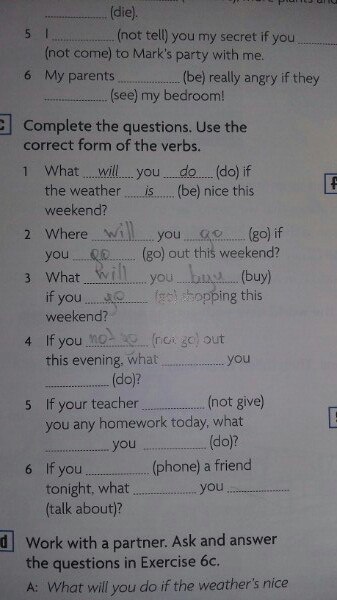 (die).
5 I ............ (not tell) you my secret if you ............
(not come) to Mark's party with me.
6 My parents ............ (be) really angry if they
............ (see) my bedroom!
c Complete the questions. Use the
correct form of the verbs.
1 What will you do (do) if
the weather is (be) nice this
weekend?
2 Where will you go (go) if
you go (go) out this weekend?
3 What will you buy (buy)
if you go (go) shopping this
weekend?
4 If you not go (not go) out
this evening, what ............ you
............ (do)?
5 If your teacher ............ (not give)
you any homework today, what
............ you ............ (do)?
6 If you ............ (phone) a friend
tonight, what ............ you ............
(talk about)?
d Work with a partner. Ask and answer
the questions in Exercise 6c.
A: What will you do if the weather's nice